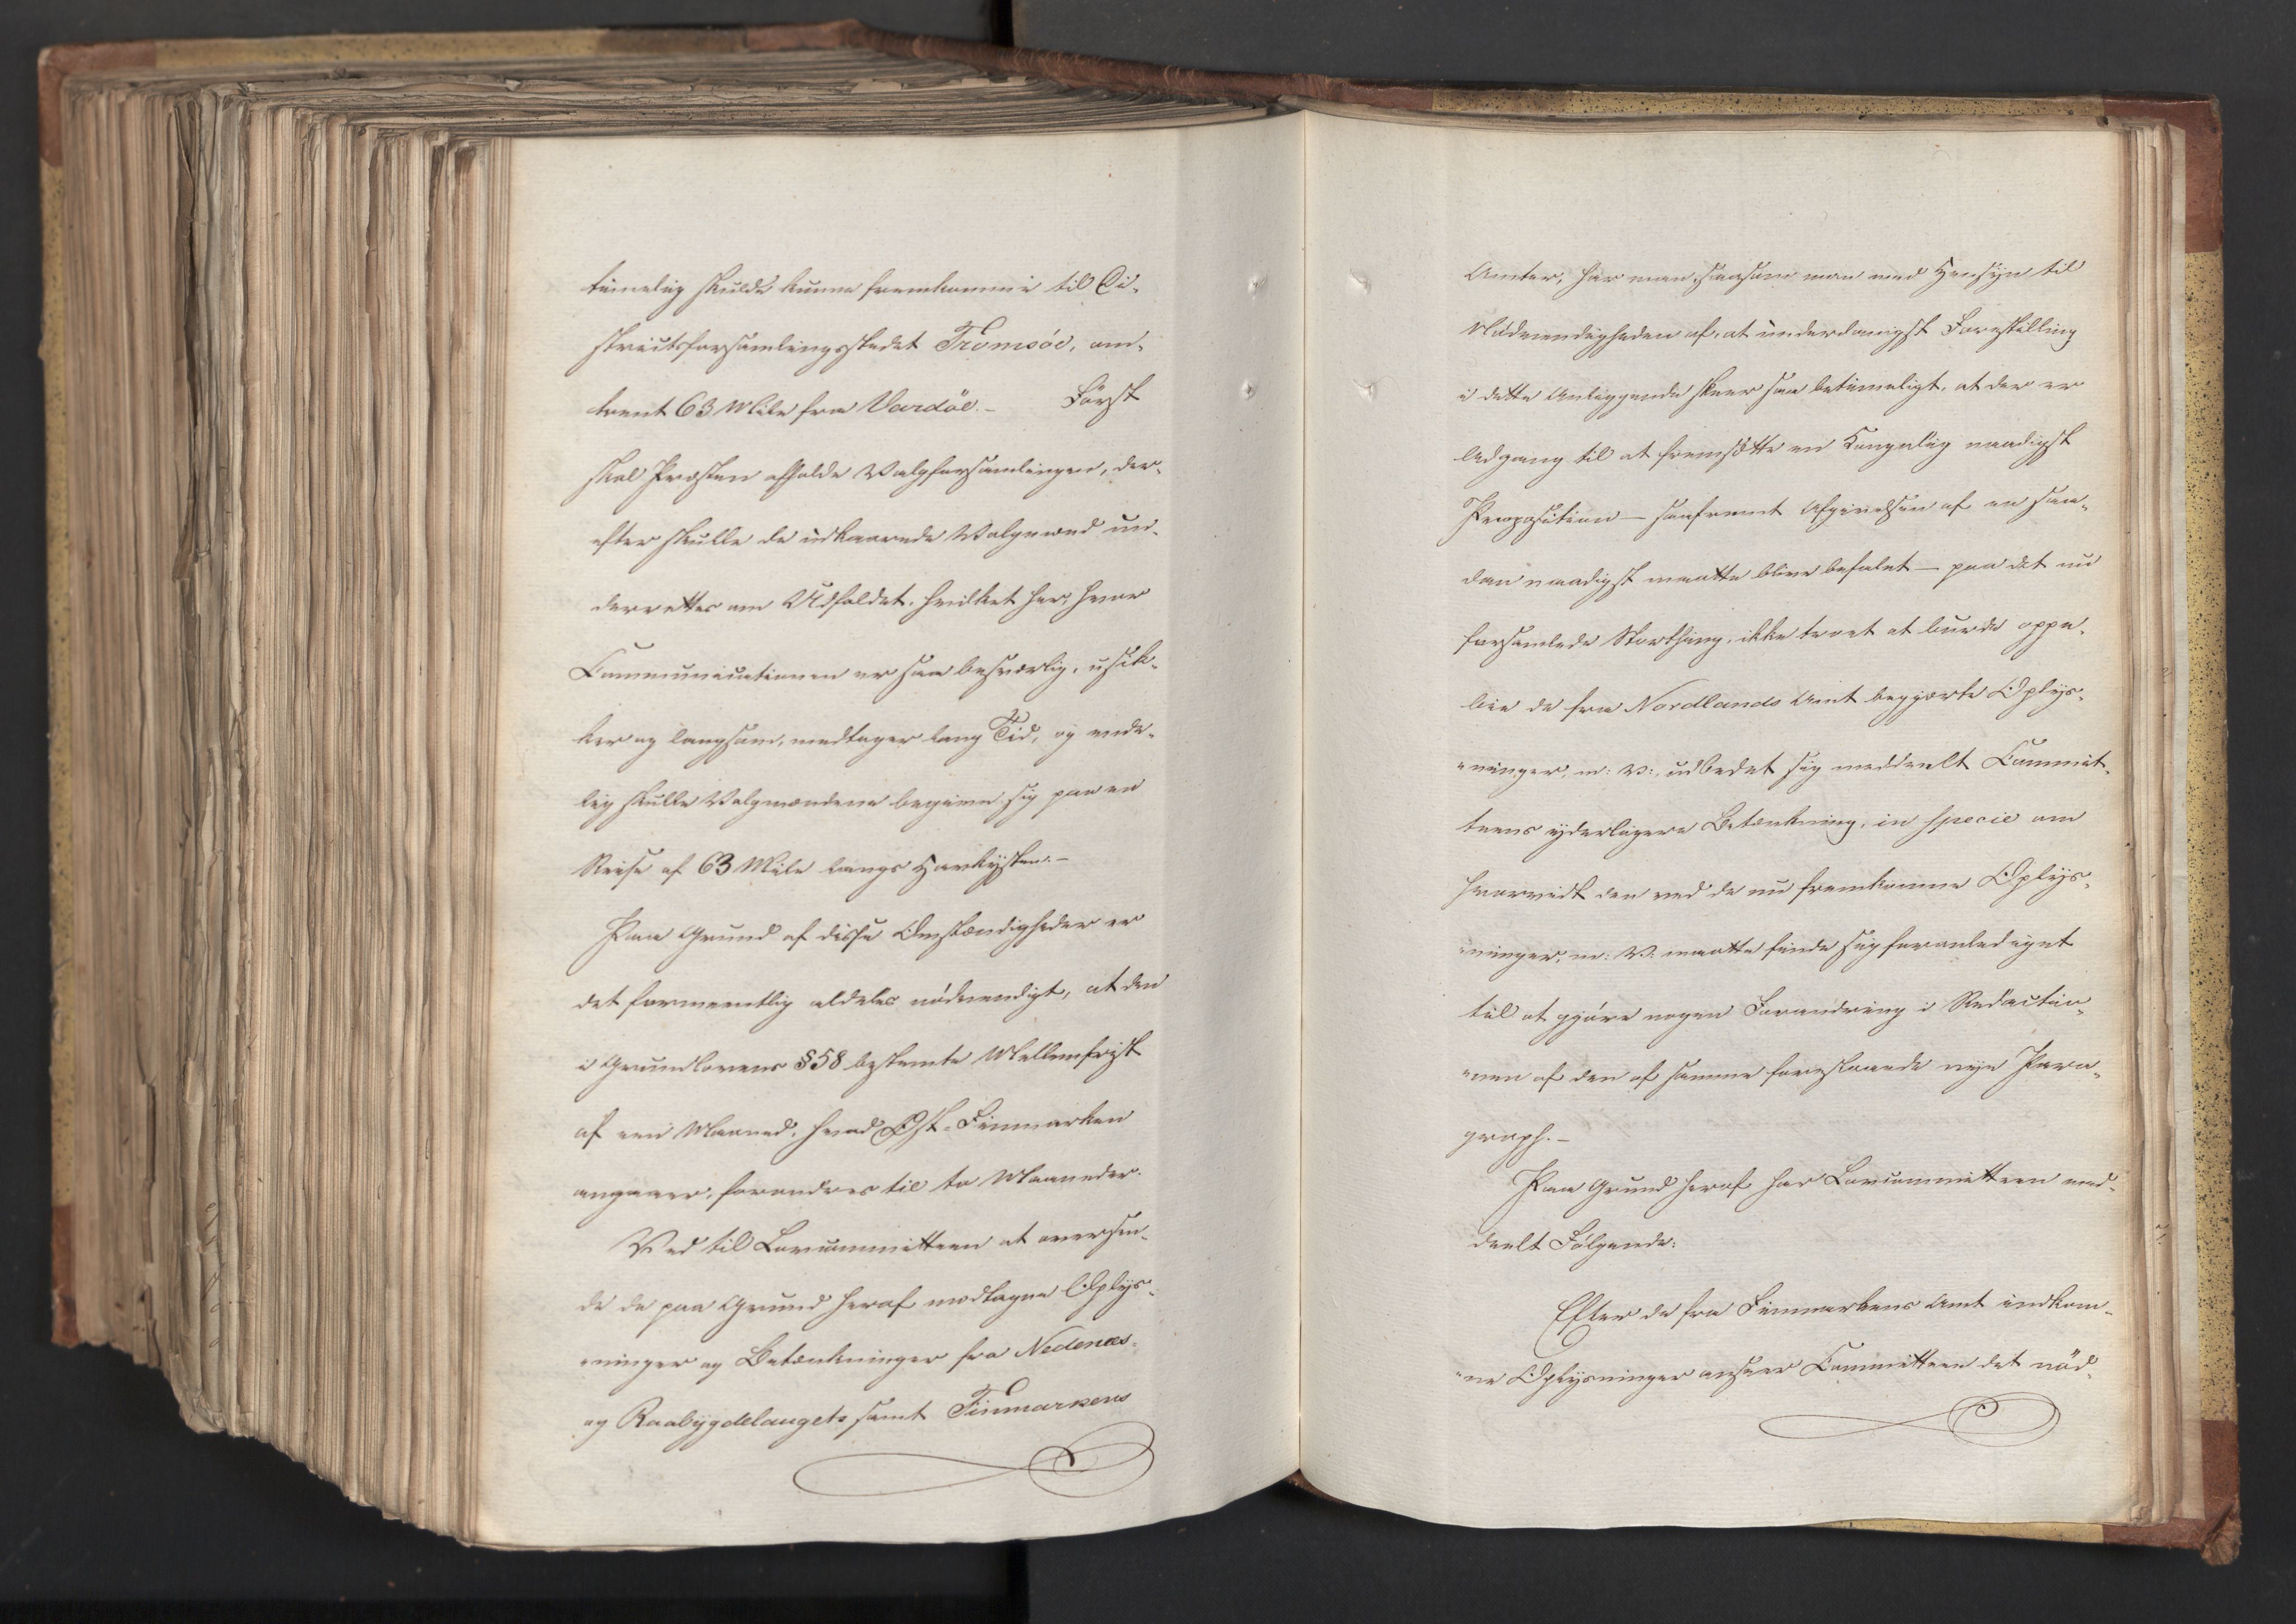 timelig skulde kunne fremkomme til Di-
strictsforsamlingsstedet Tromsöe, om-
trent 63 Mile fra Vardöe. – Först
skal Præsten afholde Valgforsamlingen, der-
efter skulle de udkaarede Valgmænd un-
derrettes om Udfaldet, hvilket her, hvor
Communicationen er saa besværlig, usik-
ker og langsom, medtager lang Tid, og ende-
lig skulle Valgmændene begive sig paa en
Reise af 63 Mile langs Havkysten. –
Paa Grund af disse Omstændigheder er
det formeentlig aldeles nødvendigt, at den
i Grundlovens § 58 bestemte Mellemfrist
af een Maaned, hvad Øst-Finmarken
angaaer, forandres til to Maaneder.
Ved til Lovcommitteen at oversen-
de de paa Grund heraf modtagne Oplys-
ninger og Betænkninger fra Nedenæs-
og Raabygdelaugets samt Finmarkens
Amter, har man, saasom man med Hensyn til
Nødvendigheden af, at underdanigst Forestilling
i dette Anliggende skeer saa betimeligt, at der er
Adgang til at fremsætte en Kongelig naadigst
Proposition – saafremt Afgivelsen af en saa-
dan naadigst maatte blive befalet – paa det nu
forsamlede Storthing, ikke troet at burde oppe-
bie de fra Nordlands Amt begjærte Oplys-
ninger, m: V:, udbedet sig meddeelt Commit-
teens yderligere Betænkning, in specie om
hvorvidt den ved de nu fremkomne Oplys-
ninger, m: V: maatte finde sig foranlediget
til at gjøre nogen Forandring i Redactio-
nen af den af samme foreslaaede nye Para-
graph. –
Paa Grund heraf har Lovcommitteen med-
deelt Følgende:
Efter de fra Finmarkens Amt indkom-
ne Oplysninger anseer Committeen det nød-